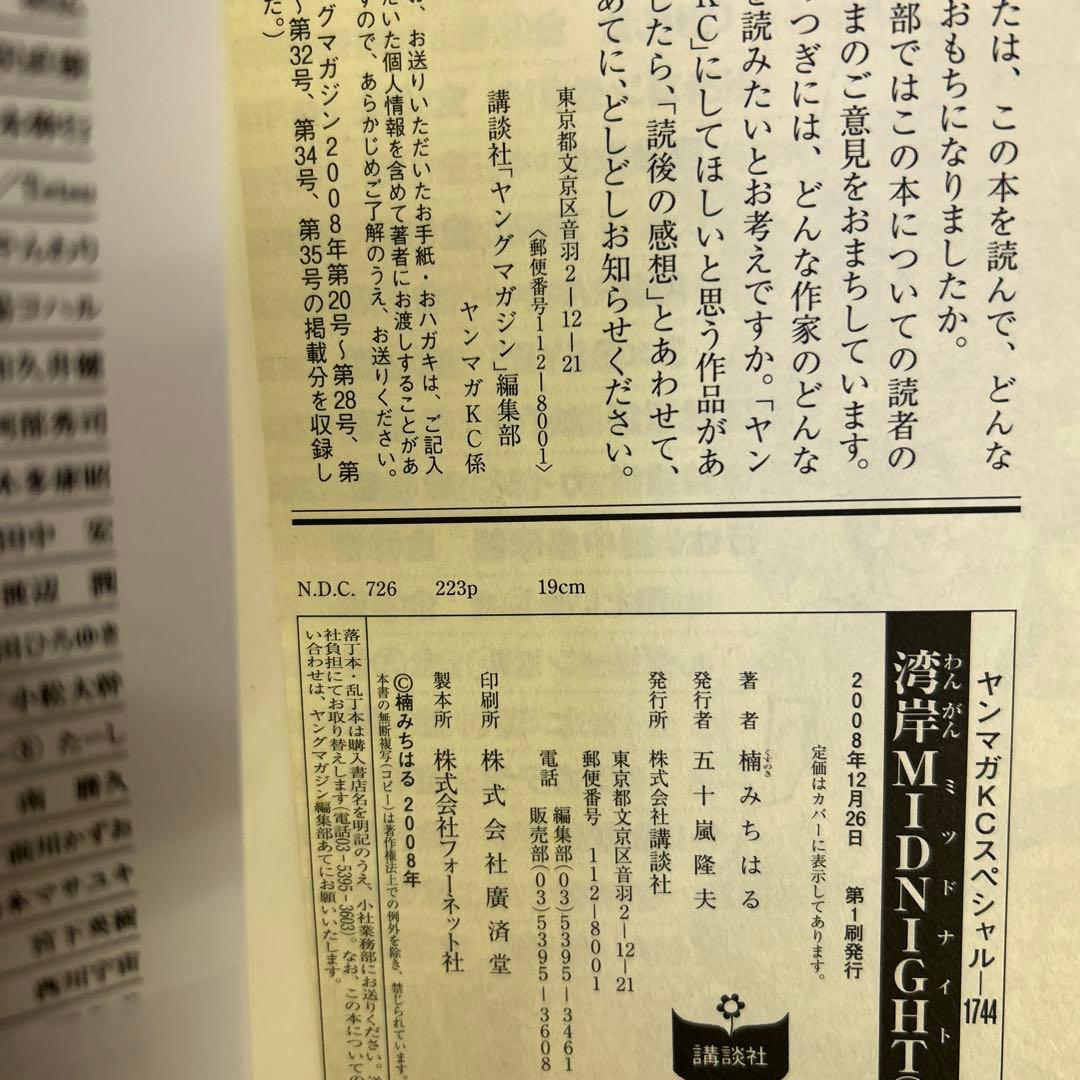 たは、この本を読んで、どんな
おもちになりましたか。
部ではこの本についての読者の
まのご意見をおまちしています。
つぎには、どんな作家のどんな
を読みたいとお考えですか。「ヤン
KC」にしてほしいと思う作品があ
したら、「読後の感想」とあわせて、
めてに、どしどしお知らせください。
東京都文京区音羽2―12―21
〈郵便番号112―8001〉
講談社「ヤングマガジン」編集部
ヤンマガKC係
お送りいただいたお手紙・おハガキは、ご記入
だいた個人情報を含めて著者にお渡しすることがあ
すので、あらかじめご了解のうえ、お送りください。
グマガジン2008年第20号～第28号、第
～第32号、第34号、第35号の掲載分を収録し
た。)
N.D.C. 726 223p 19cm
ヤンマガKCスペシャル―1744
湾岸MIDNIGHT
わんがん ミッドナイト
2008年12月26日 第1刷発行
定価はカバーに表示してあります。
著者 楠みちはる
くすのき
発行者 五十嵐隆夫
発行所 株式会社講談社
東京都文京区音羽2―12―21
郵便番号 112―8001
電話 編集部(03)5395―3461
販売部(03)5395―3608
印刷所 株式会社廣済堂
製本所 株式会社フォーネット社
©楠みちはる 2008年
本書の無断複写(コピー)は著作権法上での例外を除き、禁じられています。
落丁本・乱丁本は購入書店名を明記のうえ、小社業務部にお送りください。
社負担にてお取り替えします(電話03-5395-3603)。なお、この本についての
い合わせは、ヤングマガジン編集部あてにお願いいたします。
講談社
コハル
和久井健
阿部秀司
田中 安
渡辺 潤
田ひろゆき
小松大幹
たーし
南 勝久
前川かずお
マサユキ
宮下英樹
西川宇宙